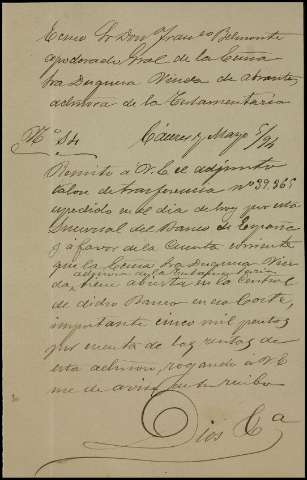 Excmo Sr Don Franco Belmonte
apoderado Gral de la Excma
Sra Duquesa Viuda de Abrantes
admora de la Testamentaria
No 84 Cáceres 7 Mayo 94
Remito a V.E. el adjunto
talon de trasferencia no 39.965
espedido en el dia de hoy por esta
Sucursal del Banco de España
y a favor de la cuenta corriente
que la Excma Sra Duquesa Viu-
admora de la Testamentaria
da tiene abierta en la Central
de dicho Banco en esa Corte,
importante cinco mil pesetas
por cuenta de las rentas de
esta admon, rogando a V.E
me de aviso de su recibo
Dios &a